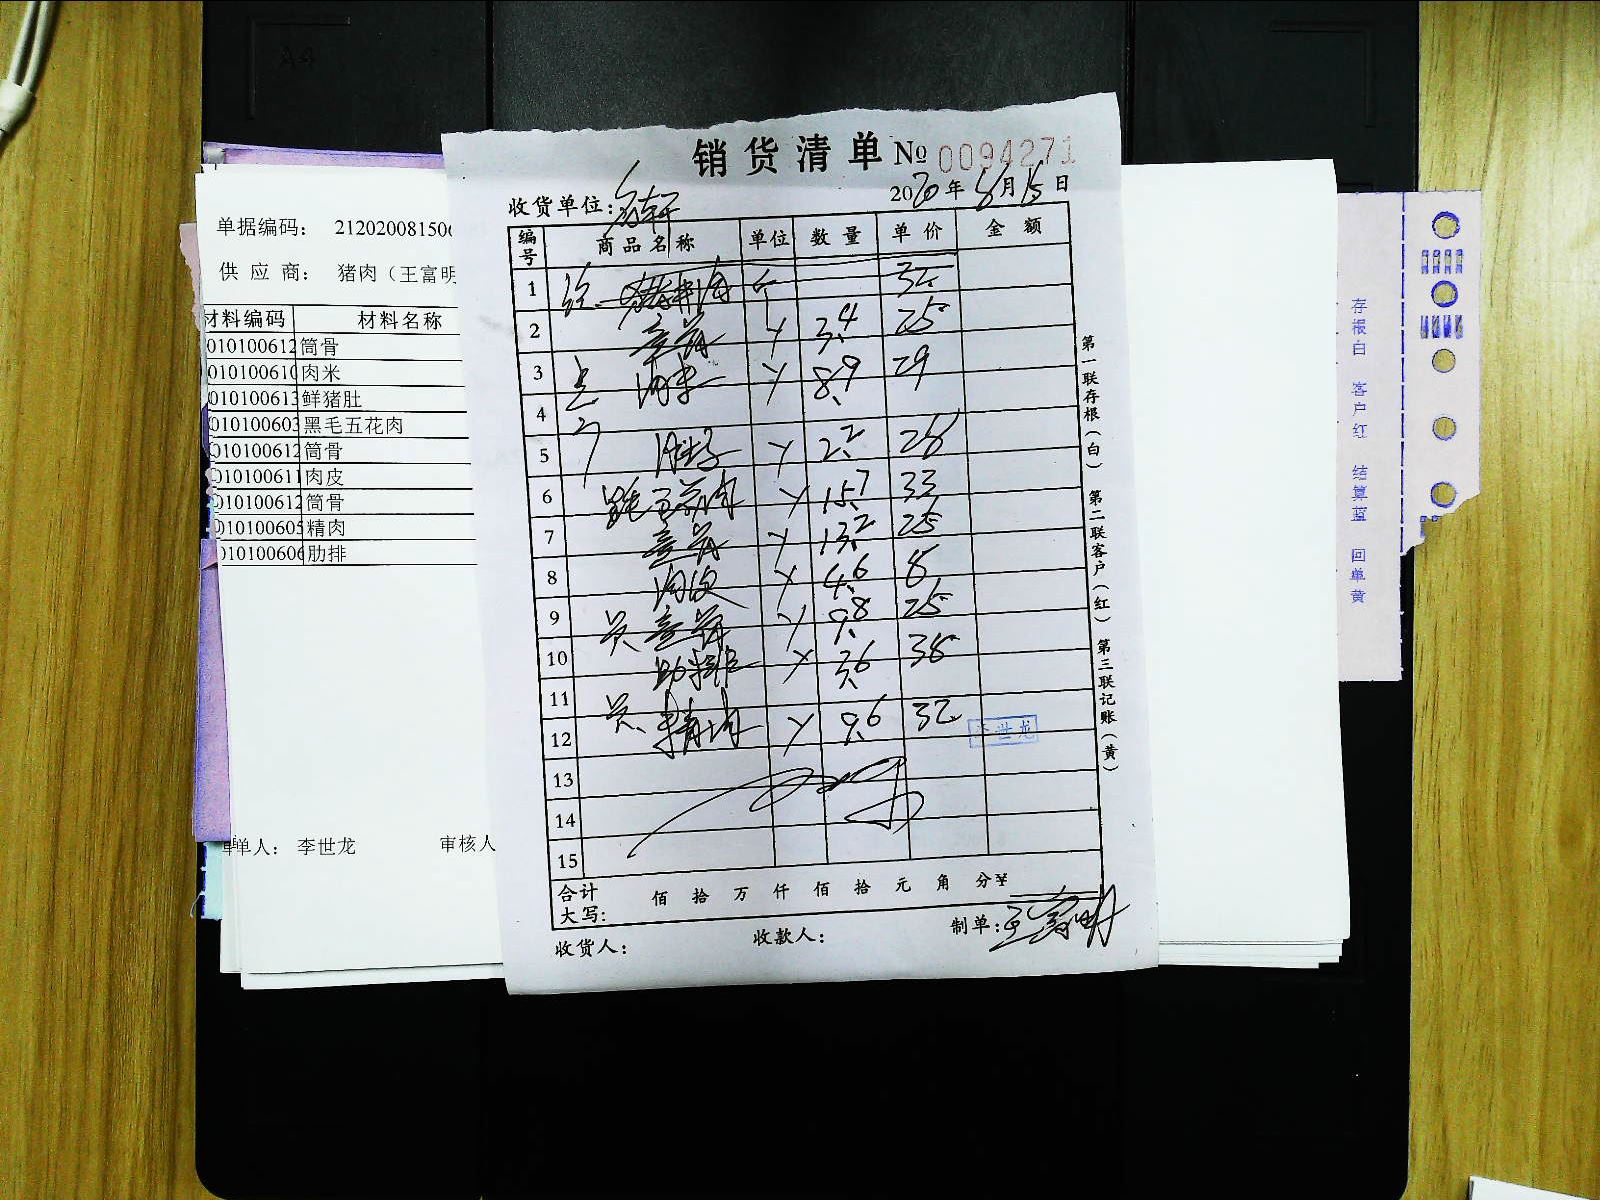 A4
销货清单 № 0094271
收货单位:
2020年8月15日
编号 商品名称 单位 数量 单价 金额
1
2 3.4 25
3 肉米 8.9 29
4
5 肚子 2.2 28
6 五花肉 15.7 33
7 13.2 25
8 肉皮 4.6 8
9 9.8 25
10 肋排 3.6 38
11
12 精肉 9.6 32
李世龙
13
14
15
合计
大写: 佰 拾 万 仟 佰 拾 元 角 分¥
收货人: 收款人: 制单:王富明
第一联存根(白) 第二联客户(红) 第三联记账(黄)
单据编码: 21202008150
供 应 商: 猪肉(王富明
材料编码 材料名称
010100612 筒骨
010100610 肉米
010100613 鲜猪肚
010100603 黑毛五花肉
010100612 筒骨
010100611 肉皮
010100612 筒骨
010100605 精肉
010100606 肋排
单人: 李世龙 审核人
存根白 客户红 结算蓝 回单黄